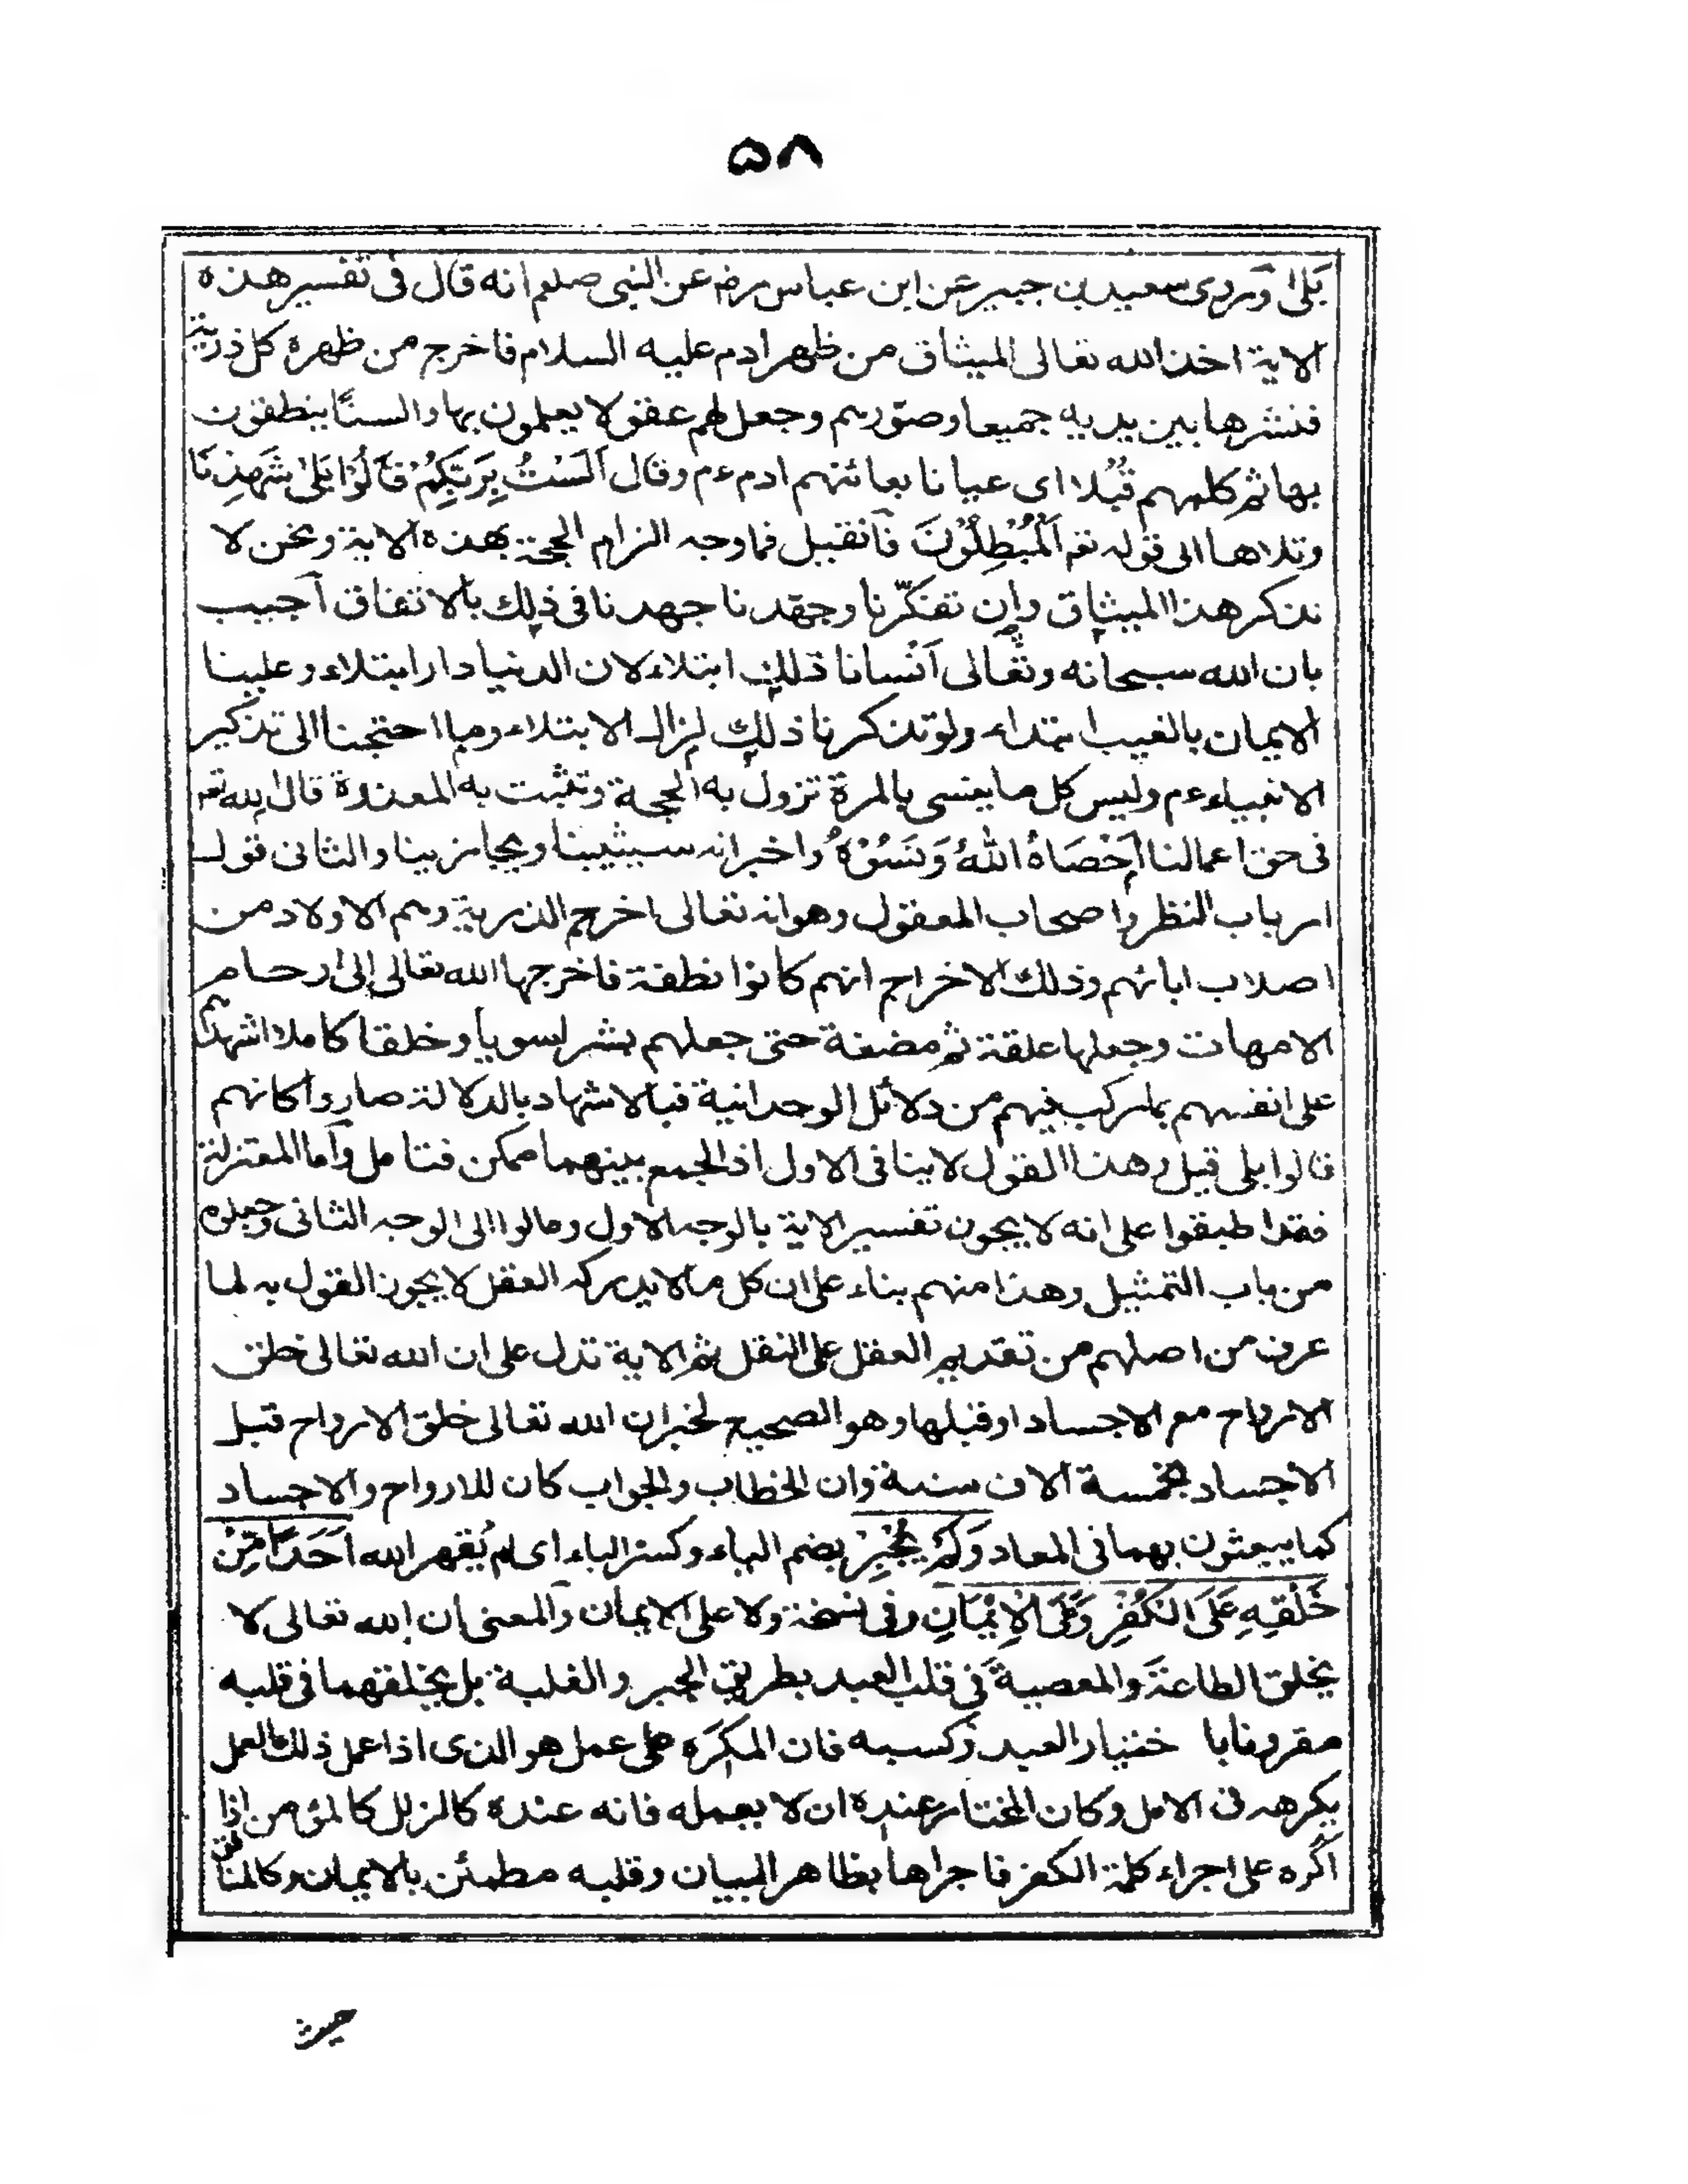 ٥٨
بَلٰى وروى سعيد بن جبير عن ابن عباس رضه عن النبى صلعم انه قال فى تفسير هذه
الاية اخذ الله تعالى الميثاق من ظهر ادم عليه السلام فاخرج من ظهره كل ذريته
فنشرها بين يديه جميعا وصوّرهم وجعل لهم عقولا يعلمون بها والسنًا ينطقون
بها ثم كلمهم قُبُلا اى عيانا يعائنهم ادم ءم وقال اَلَسْتُ بِرَبِّكُمْ قَالُوْا بَلٰى شَهِدْنَا
وتلاها الى قوله تعه اَلْمُبْطِلُوْنَ فان قيل فما وجه الزام الحجة بهذه الاية ونحن لا
نذكر هذا الميثاق وان تفكّرنا وجهدنا جهدنا فى ذلك بالاتفاق اجيب
بان الله سبحانه وتعالى اَنْسانا ذلك ابتلاء لان الدنيا دار ابتلاء وعلينا
الايمان بالغيب ابتداء ولو تذكرنا ذلك لزال الابتلاء وما احتجنا الى تذكير
الانبياء ءم وليس كل ما ينسى بالمرة تزول به الحجة وتثبت به المعذرة قال الله تعه
فى حق اعمالنا اَحْصَاهُ اللّٰهُ وَنَسُوْهُ واخبر انه سيثيبنا ويجازينا والثانى قول
ارباب النظر واصحاب المعقول وهو انه تعالى اخرج الذرية وهم الاولاد من
اصلاب ابائهم وذلك الاخراج انهم كانوا نطفة فاخرجها الله تعالى الى ارحام
الامهات وجعلها علقة ثم مضغة حتى جعلهم بشرا سويا وخلقا كاملا اشهدهم
على انفسهم بما ركب فيهم من دلائل الوحدانية فبالاشهاد بالدلالة صاروا كانهم
قالوا بلى قيل وهذا القول لا ينافى الاول اذ الجمع بينهما ممكن فتامل واما المعتزلة
فقد اطبقوا على انه لا يجوز تفسير الاية بالوجه الاول ومالوا الى الوجه الثانى وجعلوه
من باب التمثيل وهذا منهم بناء على ان كل ما لا يدركه العقل لا يجوز القول به لما
عرف من اصلهم من تقديم العقل على النقل ثم الاية تدل على ان الله تعالى خلق
الارواح مع الاجساد او قبلها وهو الصحيح لخبر ان الله تعالى خلق الارواح قبل
الاجساد بخمسة الاف سنة وان الخطاب والجواب كان للارواح والاجساد
كما يبعثون بهما فى المعاد وَلَمْ يُجْبِرْ بضم الياء وكسر الباء اى لم يُقهر الله اَحَدًا مِّنْ
خَلْقِهِ عَلَى الْكُفْرِ وَعَلَى الْاِيْمَانِ وفى نسخة ولا على الايمان والمعنى ان الله تعالى لا
يخلق الطاعة والمعصية فى قلب العبد بطريق الجبر والغلبة بل يخلقهما فى قلبه
مقرونا با ختيار العبد وكسبه فان المكرَه على عمل هو الذى اذا عمل ذلك العمل
يكرهه فى الاصل وكان المختار عنده ان لا يعمله فانه عنده كالزلل كالمؤمن اذا
اُكره على اجراء كلمة الكفر فاجراها بظاهر البيان وقلبه مطمئن بالايمان وكالمنافق
حيث